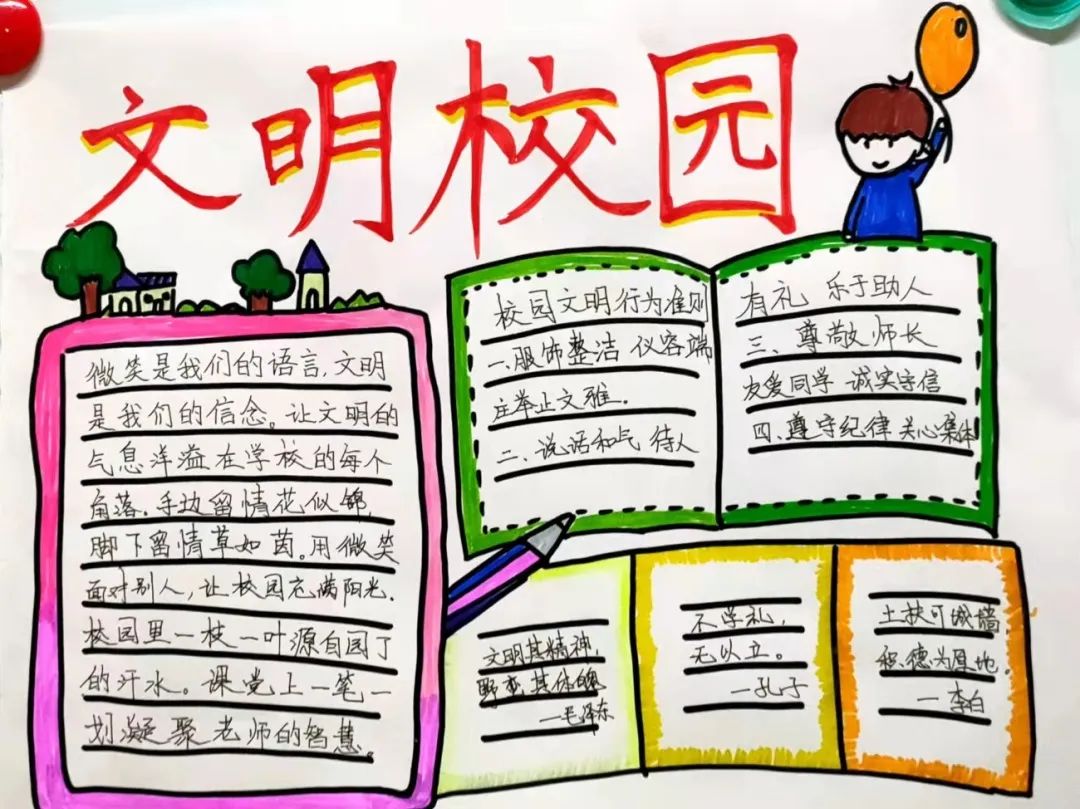 文明校园
微笑是我们的语言,文明
是我们的信念。让文明的
气息洋溢在学校的每个
角落.手边留情花似锦,
脚下留情草如茵。用微笑
面对别人,让校园充满阳光.
校园里一枝一叶源自园丁
的汗水。课堂上一笔一
划凝聚老师的智慧。
校园文明行为准则
一.服饰整洁 仪容端
庄举止文雅.
二、说话和气 待人
有礼 乐于助人
三、尊敬师长
友爱同学 诚实守信
四、遵守纪律 关心集体
文明其精神,
野蛮其体魄
—毛泽东
不学礼,
无以立。
—孔子
土扶可城墙
积德为厚地.
—李白